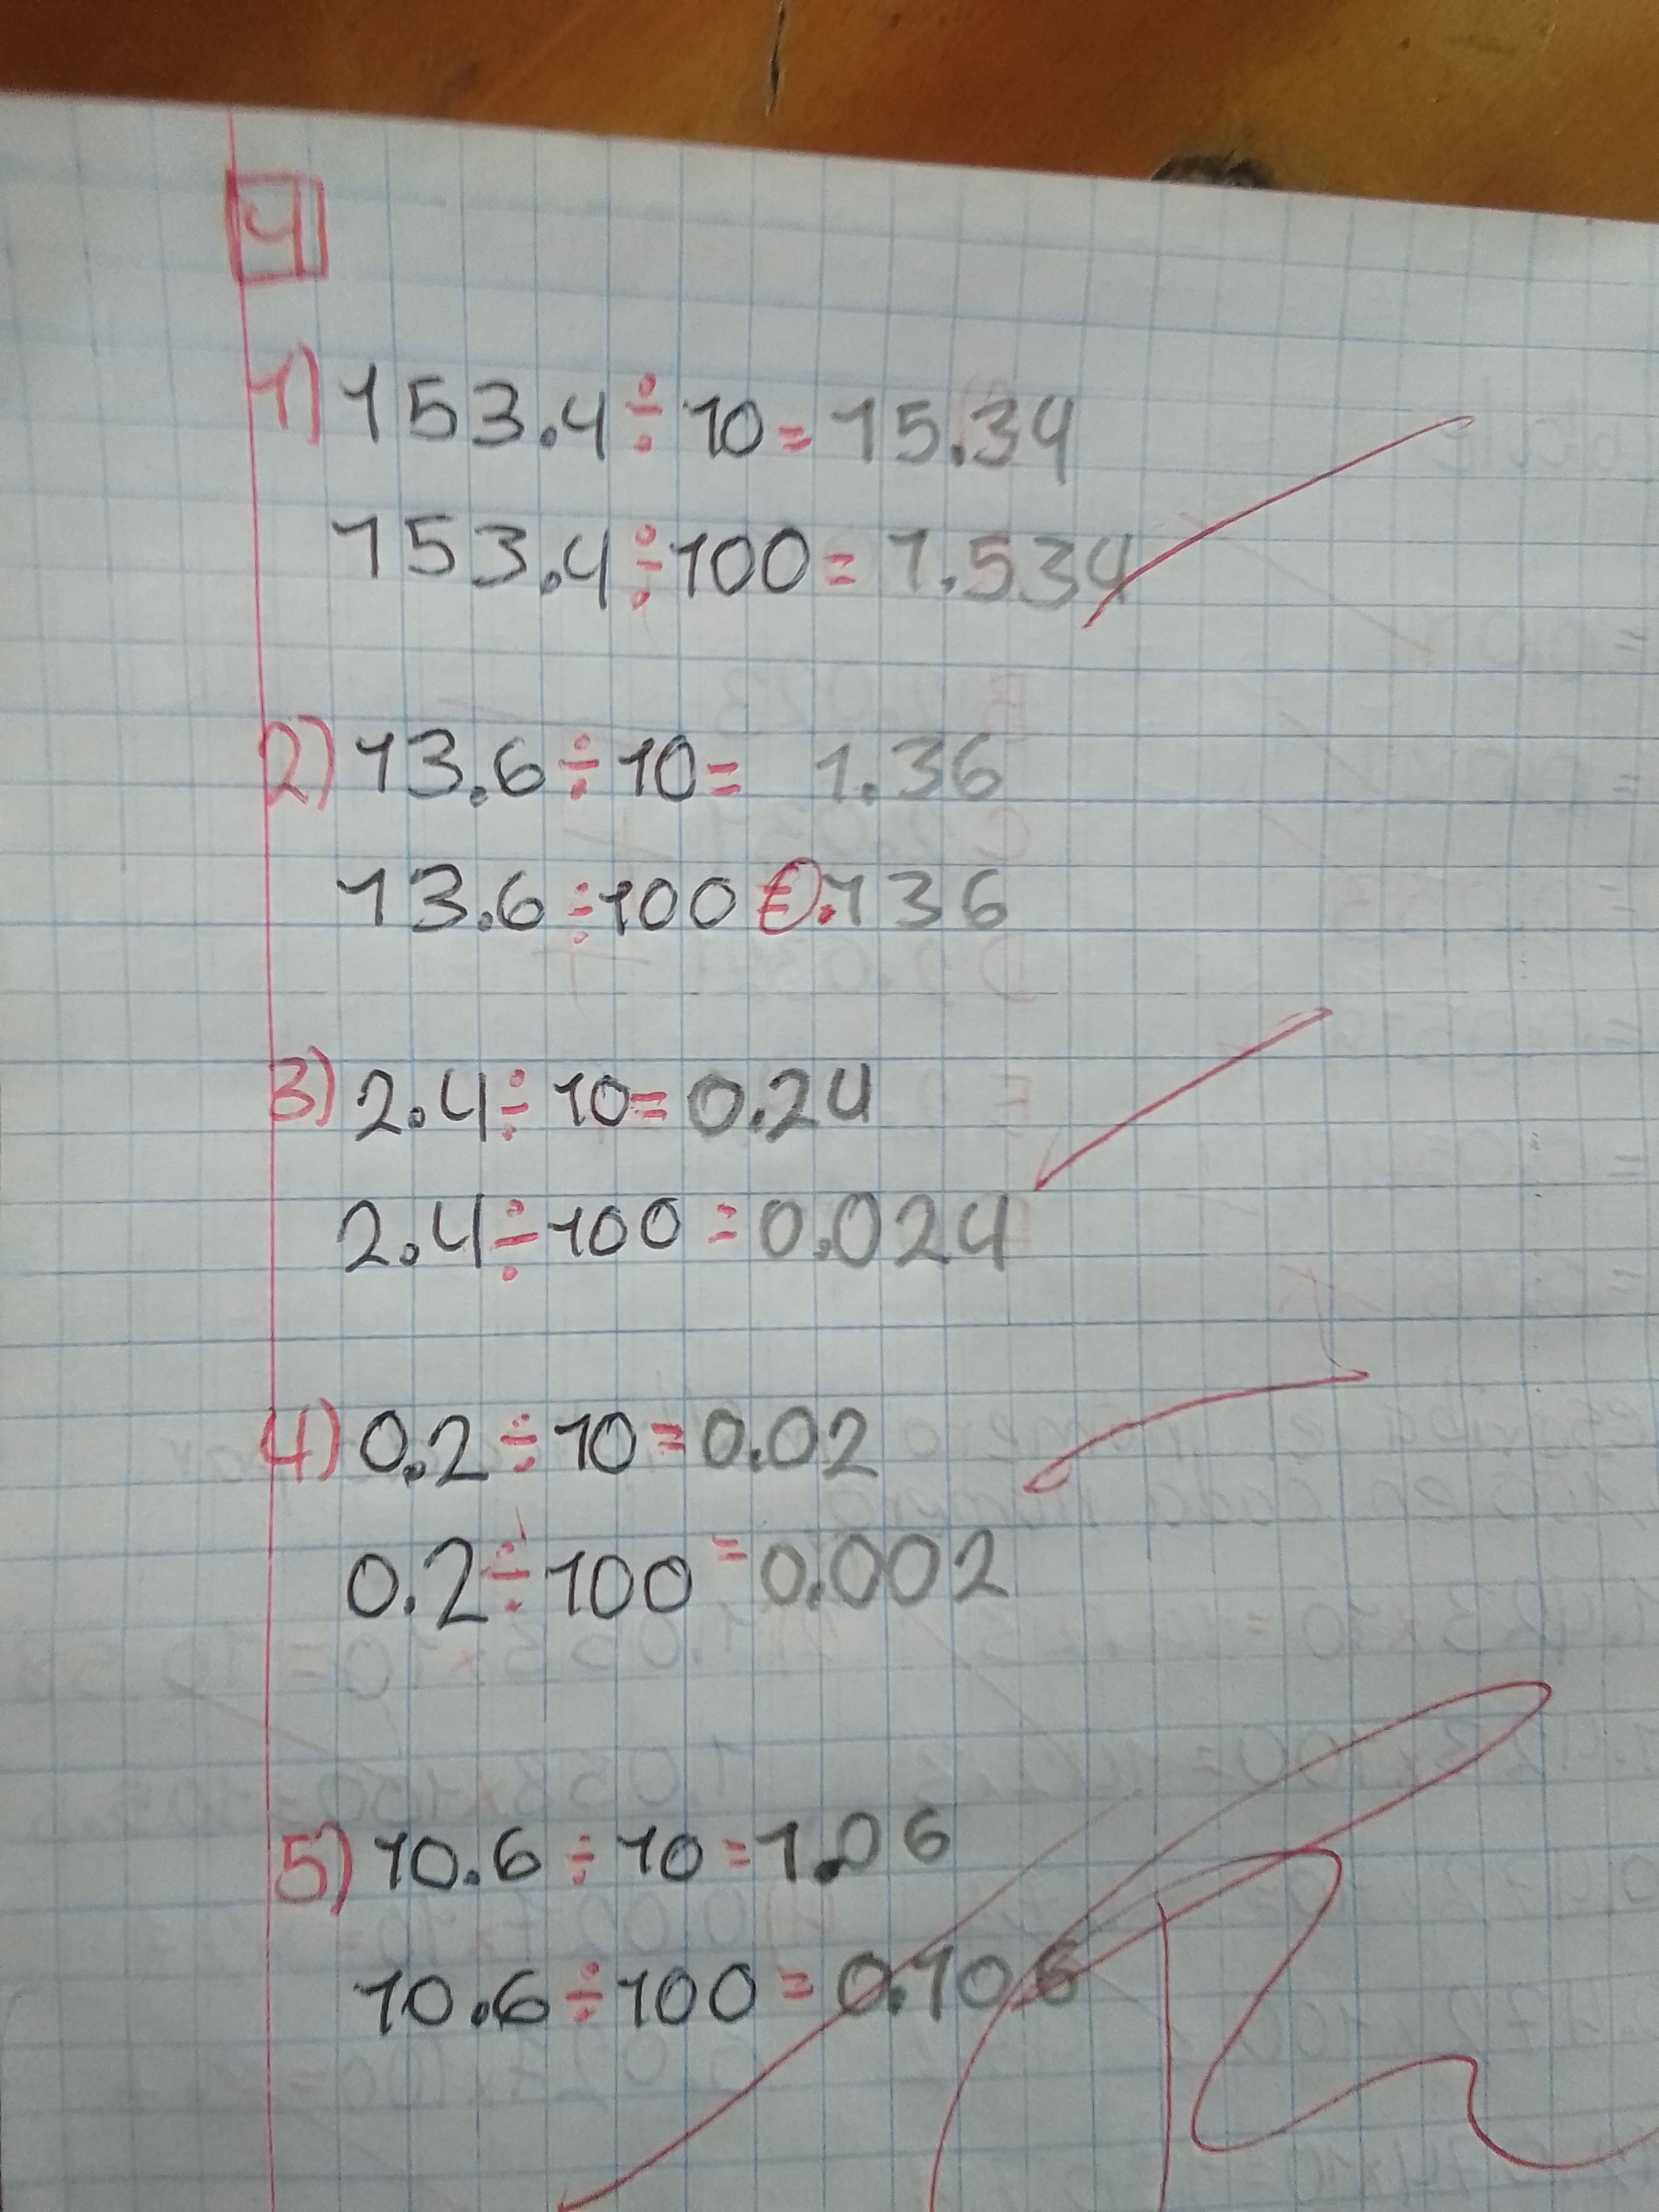 4
1) 153.4 ÷ 10 = 15.34
153.4 ÷ 100 = 1.534
2) 13.6 ÷ 10 = 1.36
13.6 ÷ 100 = 0.136
3) 2.4 ÷ 10 = 0.24
2.4 ÷ 100 = 0.024
4) 0.2 ÷ 10 = 0.02
0.2 ÷ 100 = 0.002
5) 10.6 ÷ 10 = 1.06
10.6 ÷ 100 = 0.106